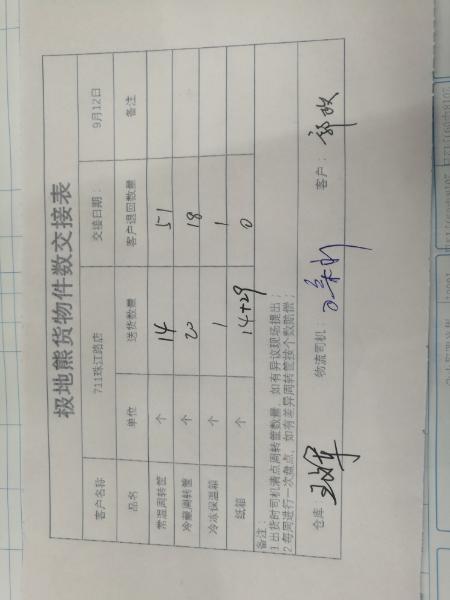 极地熊货物件数交接表
客户名称 711珠江路店 交接日期： 9月12日
品名 单位 送货数量 客户退回数量 备注
常温周转筐 个 14 51
冷藏周转筐 个 20 18
冷冻保温箱 个 1 1
纸箱 个 14+29 0
备注：
1.出货时司机清点周转筐数量，如有异议现场提出；
2.每周进行一次盘点，如有差异周转筐按个数赔偿；
仓库： 物流司机： 客户：